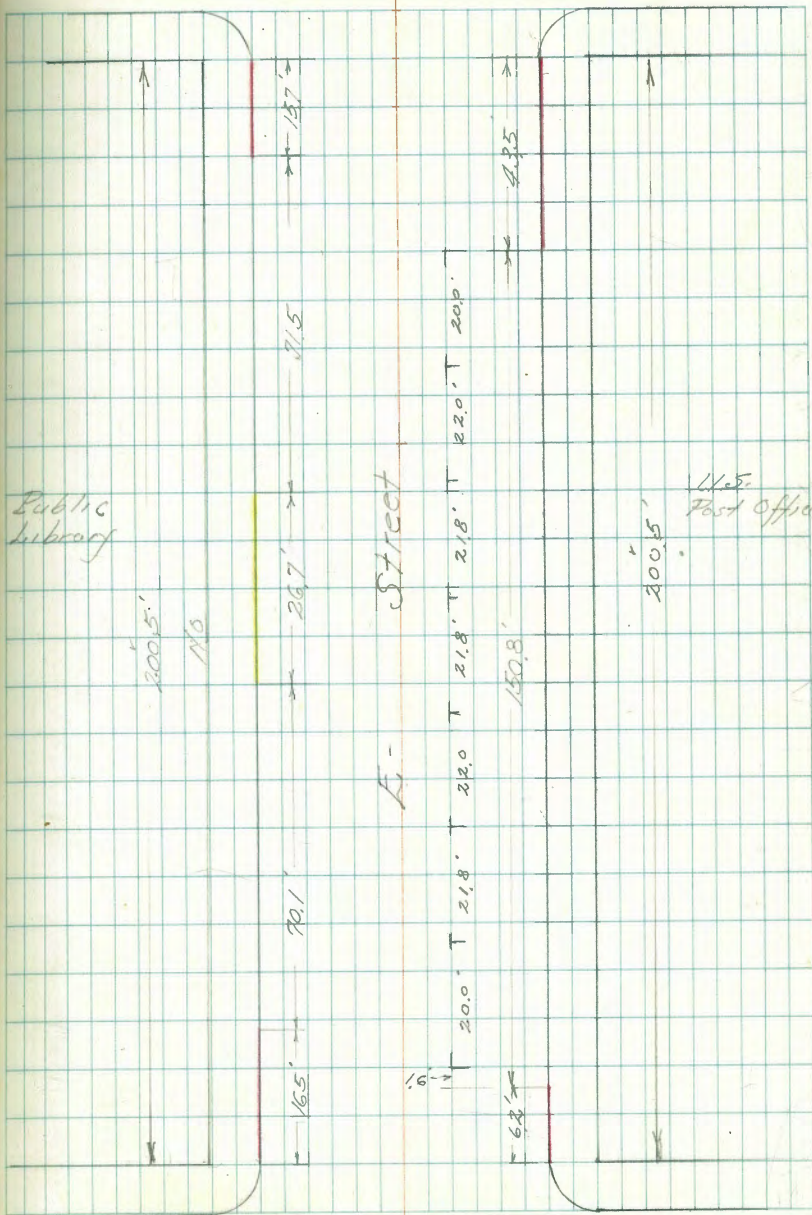 Public
Library
200.5'
15.7'
71.5
26.7'
70.1'
16.5'
E - Street
20.0'
22.0'
21.8'
21.8'
22.0
21.8'
20.0'
1.6
43.5
150.8'
6.2'
200.5'
U.S.
Post Offic